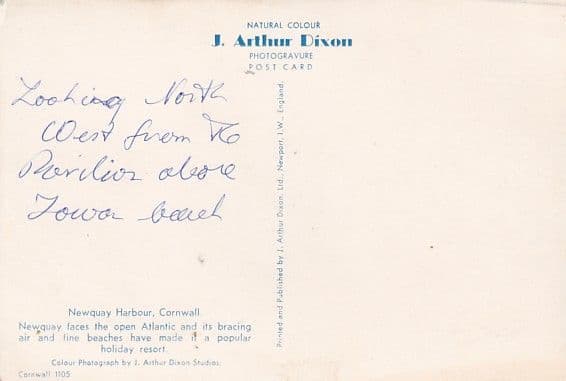 NATURAL COLOUR
J. Arthur Dixon
PHOTOGRAVURE
POST CARD
Looking North
West from the
Pavilion above
Towan beach
Printed and Published by J. Arthur Dixon, Ltd., Newport, I.W., England.
Newquay Harbour, Cornwall
Newquay faces the open Atlantic and its bracing
air and fine beaches have made it a popular
holiday resort
Colour Photograph by J. Arthur Dixon Studios.
Cornwall 1105